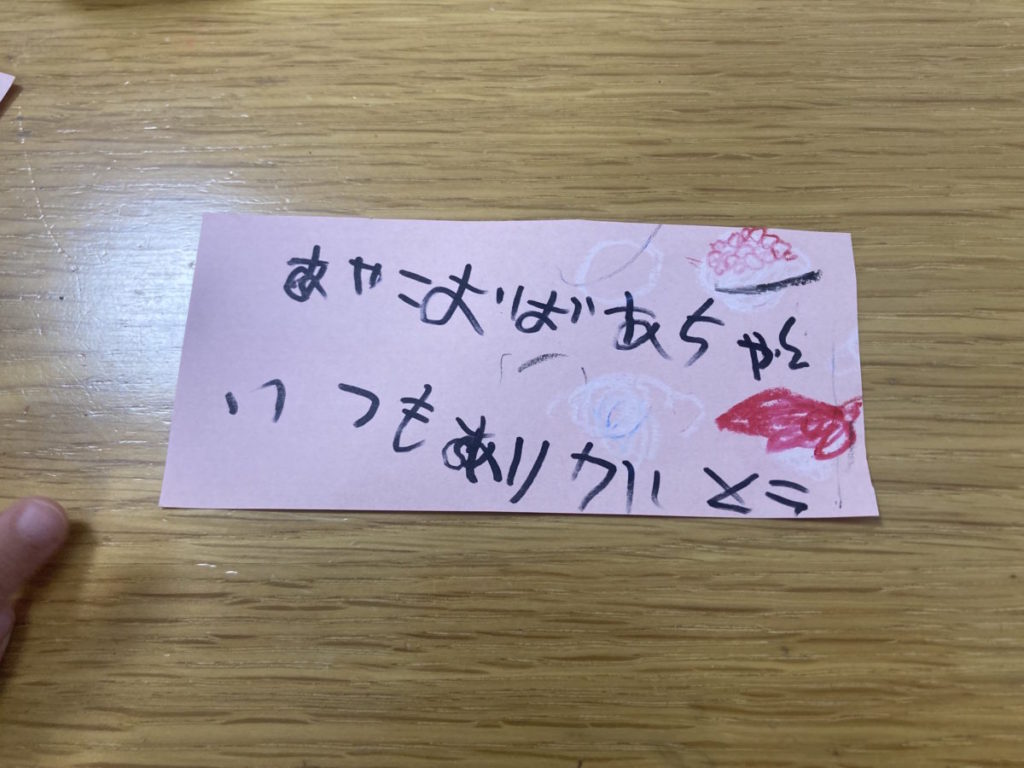 あやこおばあちゃん
いつもありがとう